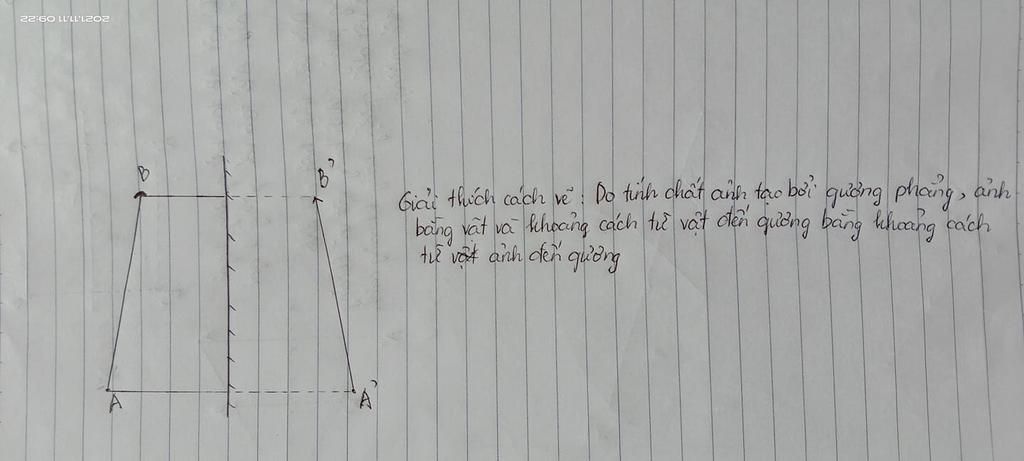 2021.11.11 09:22
B
B'
Giải thích cách vẽ : Do tính chất ảnh tạo bởi gương phẳng, ảnh
bằng vật và khoảng cách từ vật đến gương bằng khoảng cách
từ vật ảnh đến gương
A
A'